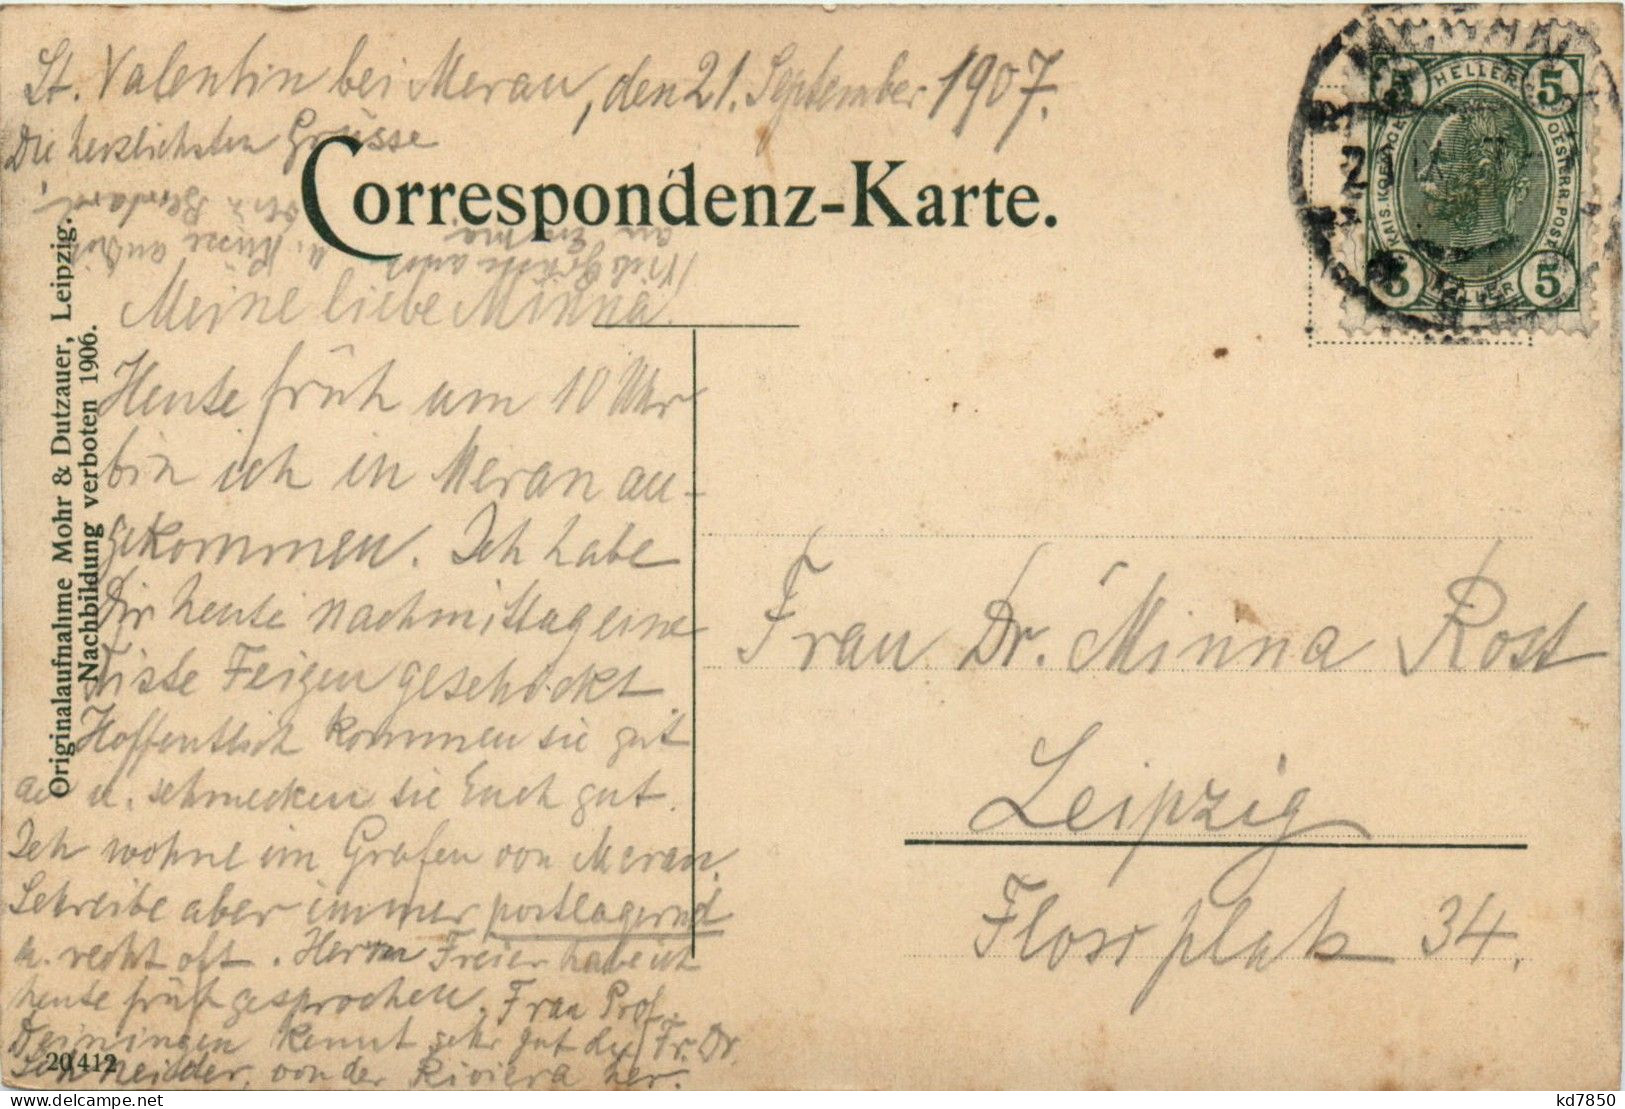 St. Valentin bei Meran, den 21. September 1907.
Die herzlichsten Grüsse
Correspondenz-Karte.
Viele Grüsse auch
an Emma
u. Küsse
Meine liebe Minna!
Heute früh um 10 Uhr
bin ich in Meran an-
gekommen. Ich habe
Dir heute nachmittag eine
Kiste Feigen geschickt
Hoffentlich kommen sie gut
an u. schmecken sie Euch gut.
Ich wohne im Grafen von Meran.
Schreibe aber immer postlagernd
u. recht oft. Herrn Freier habe ich
heute früh gesprochen. Frau Prof.
Deiningen kennt sehr gut die Fr. Dr.
Schneider, von der Riviera her.
Originalaufnahme Mohr & Dutzauer, Leipzig.
Nachbildung verboten 1906.
20412
5 HELLER 5
KAIS. KOENIGL. OESTERR. POST
5 HELLER 5
MERAN
Frau Dr. Minna Rost
Leipzig
Flossplatz 34.
kd7850